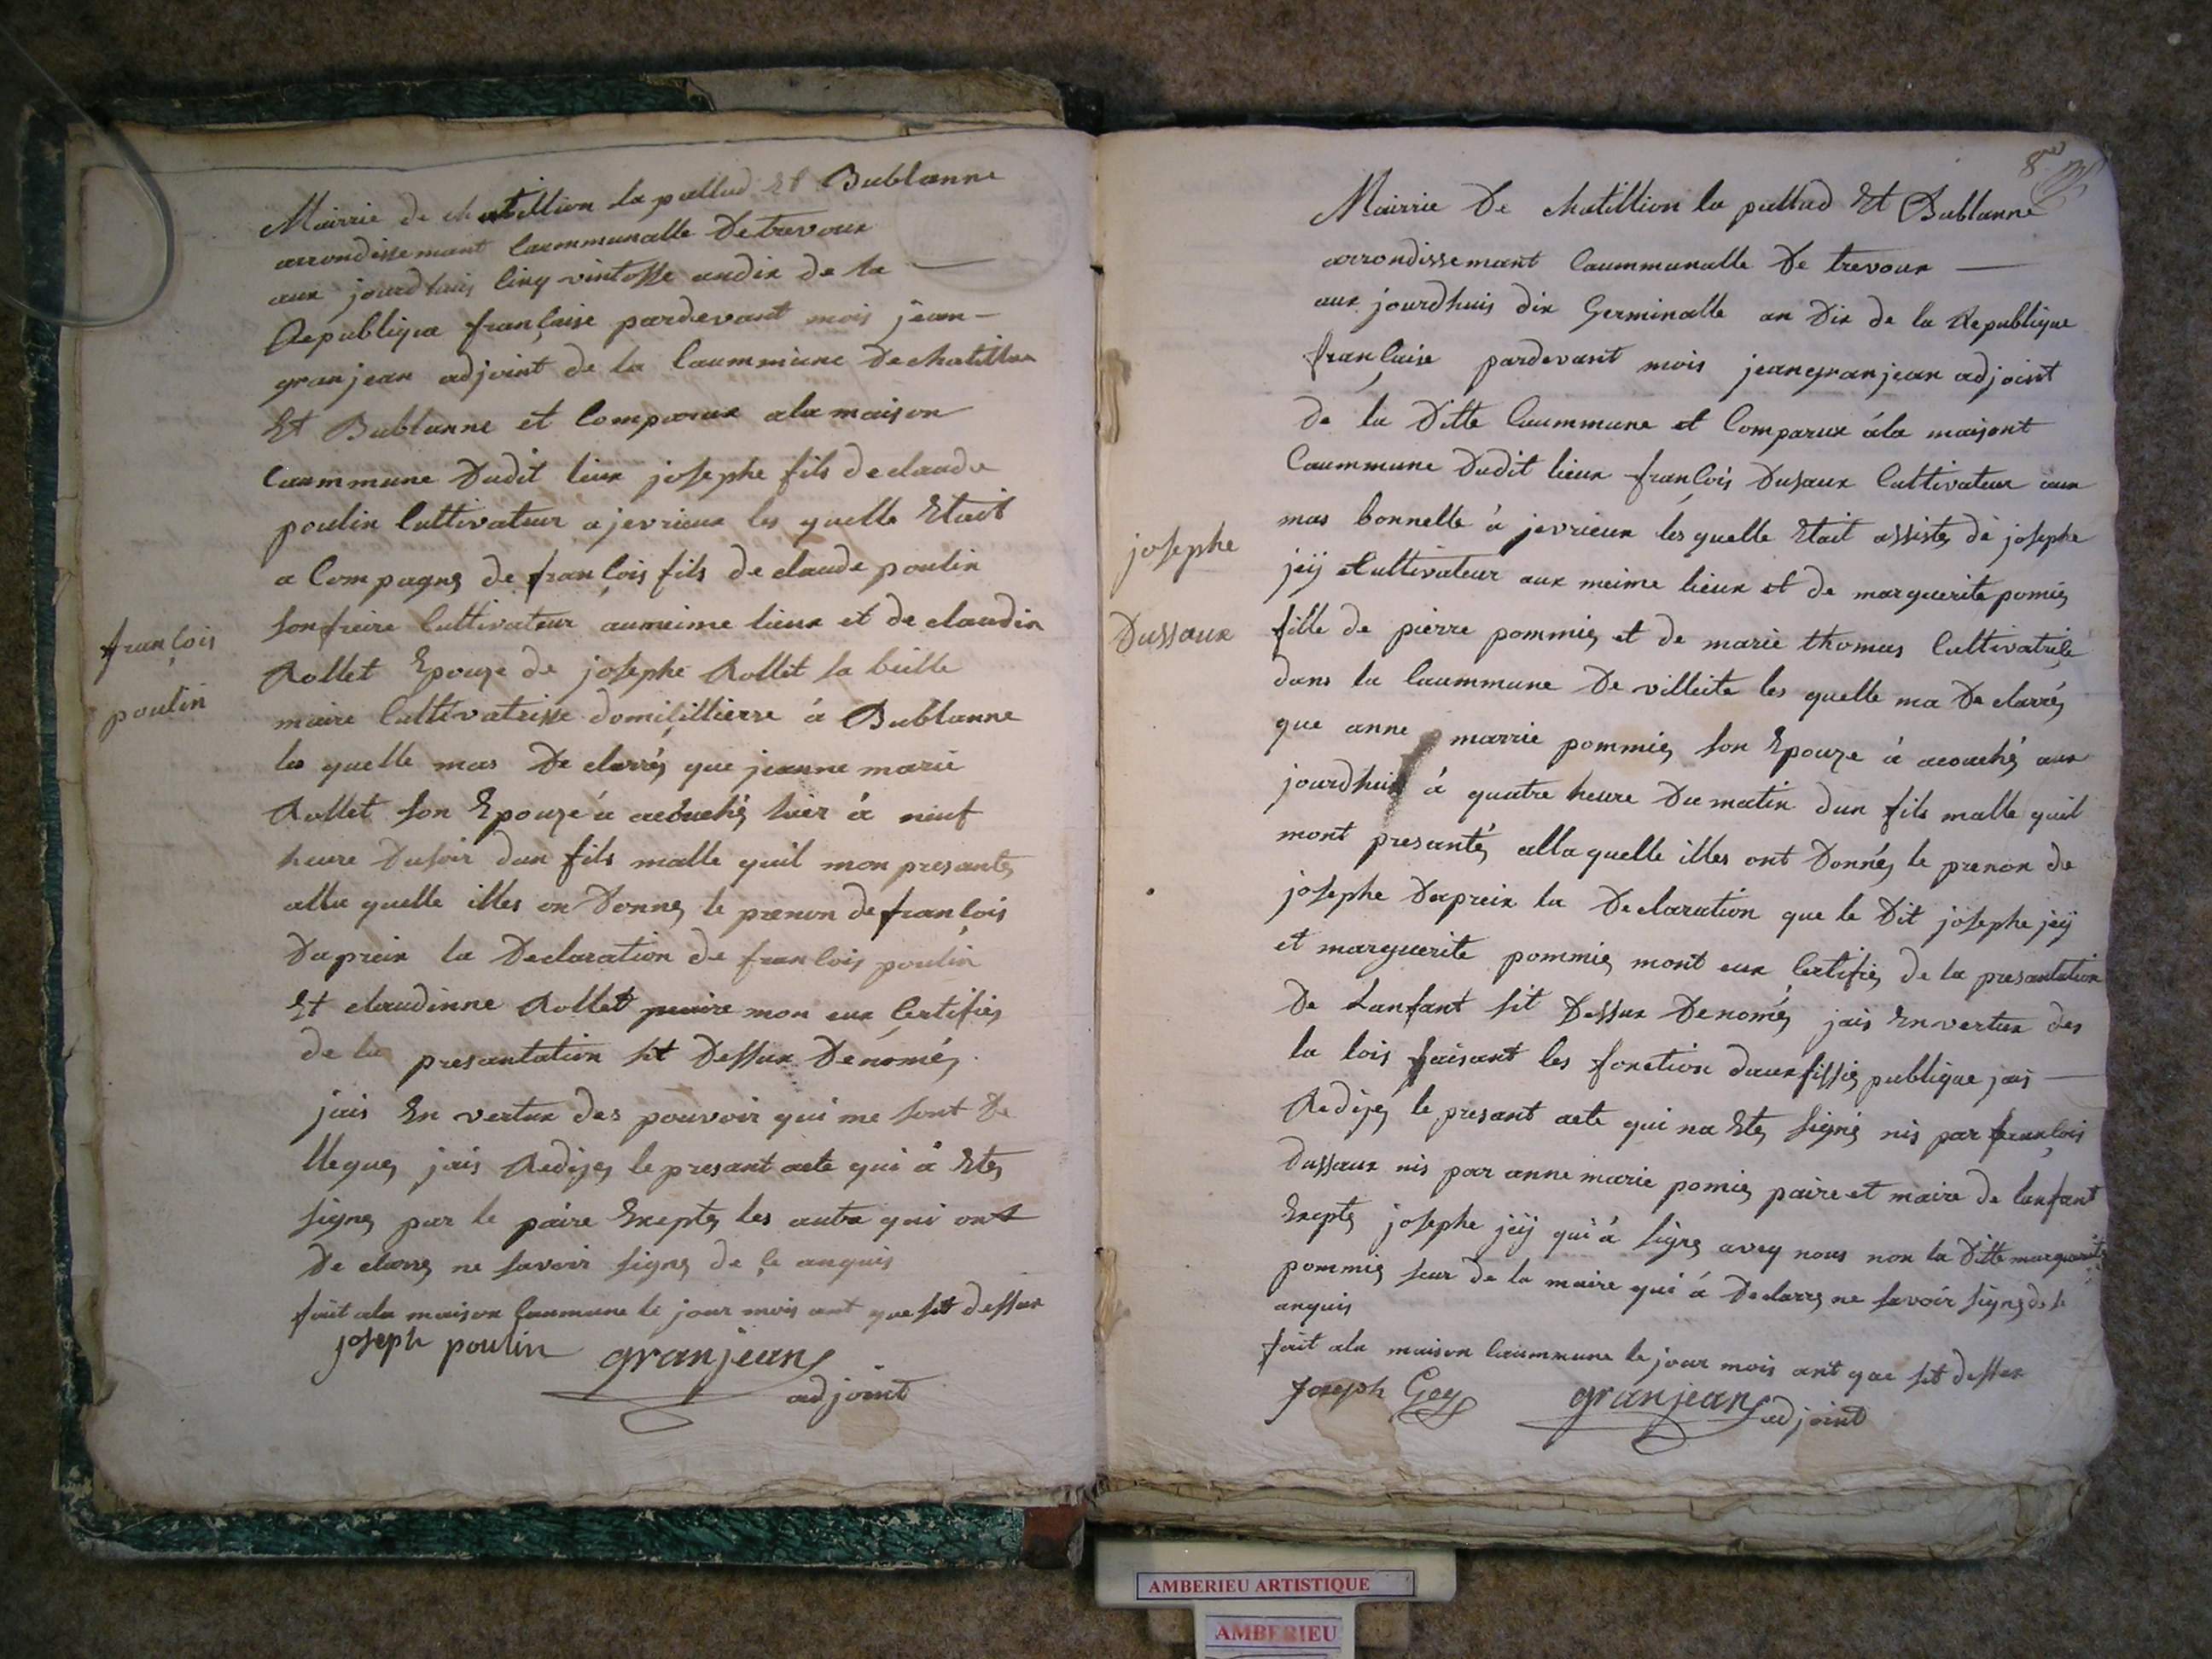 Mairrie de chatillion la pallud Et Bublanne
arrondissemant Caummunalle De trevoux
aux jourdhuis Cinq vintosse andix de la
Republique française pardevant mois jean
granjean adjoint de la Caummune De chatillon
Et Bublanne et Comparux ala maison
Caummune Dudit lieux josephe fils de claude
poulin Cultivateur a jevrieux les quelle Etait
a Compagné de françois fils de claude poulin
son freire Cultivateur aumeime lieux et de claudin
Rollet Epouze de josephe Rollet sa beille
maire Cultivatrisse domicillierre à Bublanne
les quelle mas De clarréz que jeanne marie
Rollet son Epouze à acouchéz hier à neuf
heure Dusoir dun fils malle quil mon presantéz
alla quelle illes on Donnéz le prenon de françois
françois
poulin
Daprein la Declaration de françois poulin
Et claudinne Rollet maire mon eux Certifiéz
de la presantation sit Dessux Denoméz
jais En vertux des pouvoir qui me sont De
lleguéz jais Redijéz le presant acte qui à Etéz
signéz par le paire Exceptéz les autre qui ont
De clarréz ne savoir signéz de çe anquis
fait ala maison Caumune le jour mois ant que sit dessux
joseph poulin granjean
adjoint
8
Mairrie De chatillion la pallud Et Bublanne
arrondissemant Caummunalle De trevoux
aux jourdhuis dix Germinalle an Dix de la Republique
française pardevant mois jeangranjean adjoint
de la Ditte Caummune et Comparux àla maisont
Caummune Dudit lieux françois Dusaux Cultivateur aux
mas bonnelle à jevrieux les quelle Etait assistéz de josephe
jeÿ Cultivateur aux meime lieux et de marguerite pomiéz
josephe
Dussaux
fille de pierre pommiéz et de marie thomas Cultivatriçe
dans la Caummune De villeite les quelle ma De clarréz
que anne marrie pommiéz son Epouze à acouchéz aux
jourdhuis à quatre heure Du matin dun fils malle quil
mont presantéz alla quelle illes ont Donnéz le prenon de
josephe Daprein la Declaration que le Dit josephe jeÿ
et marguerite pommiéz mont eux Certifiéz de la presantation
De Lanfant sit Dessux Denoméz jais En vertux des
la lois faisant les fonction dauxfissiéz publique jais
Redijéz le presant acte qui na Etéz signéz nis par françois
dussaux nis par anne marie pomiéz paire et maire de lanfant
Exceptéz josephe jeÿ qui à signéz aveq nous non la Ditte marguerite
pommiéz seur de la maire qui à Declarréz ne savoir signéz de se
anquis
fait ala maison Caummune le jour mois ant que sit dessux
Joseph Gey granjean adjoint
AMBERIEU ARTISTIQUE
AMBERIEU